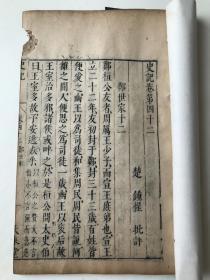 史記卷第四十二
楚 鍾惺 批評
鄭世家十二
鄭桓公友者周厲王少子而宣王庶弟也宣王
立二十二年友初封于鄭封三十三歲百姓皆
便愛之幽王以為司徒和集周民周民皆說河
雒之間人便思之為司徒一歲幽王以襃后故
王室治多邪諸侯或畔之於是桓公問太史伯
曰王室多故予安逃死乎
史記